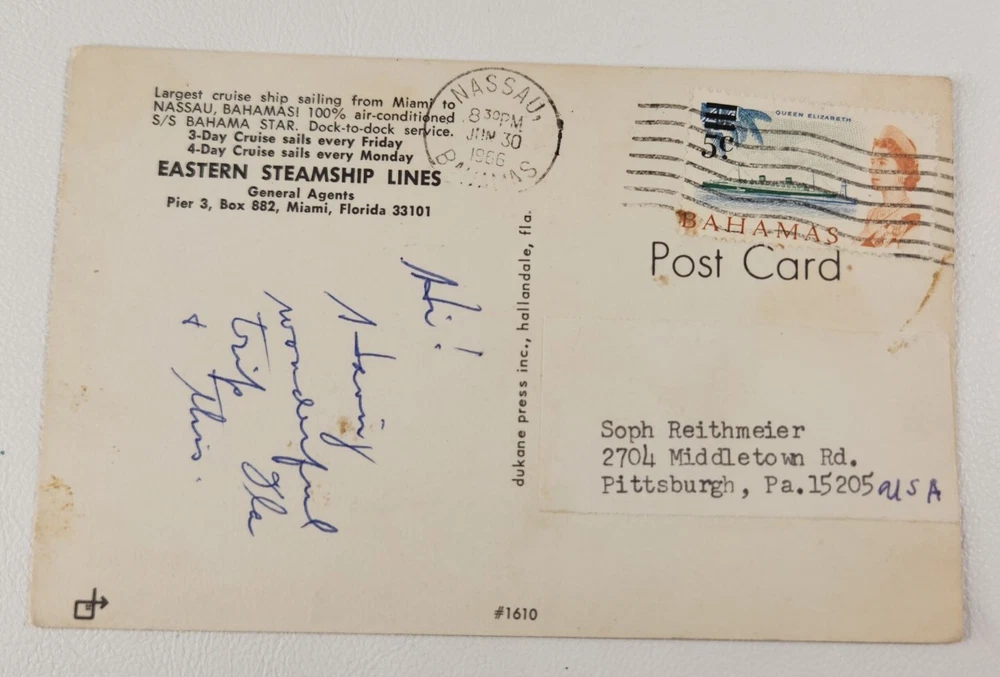 Largest cruise ship sailing from Miami to
NASSAU, BAHAMAS! 100% air-conditioned
S/S BAHAMA STAR. Dock-to-dock service.
3-Day Cruise sails every Friday
4-Day Cruise sails every Monday
EASTERN STEAMSHIP LINES
General Agents
Pier 3, Box 882, Miami, Florida 33101
NASSAU,
8 30PM
JUN 30
1966
BAHAMAS
QUEEN ELIZABETH
5c
BAHAMAS
Post Card
Hi!
Having
wonderful
trip Fla
& this.
dukane press inc., hallandale, fla.
Soph Reithmeier
2704 Middletown Rd.
Pittsburgh, Pa.15205 USA
#1610